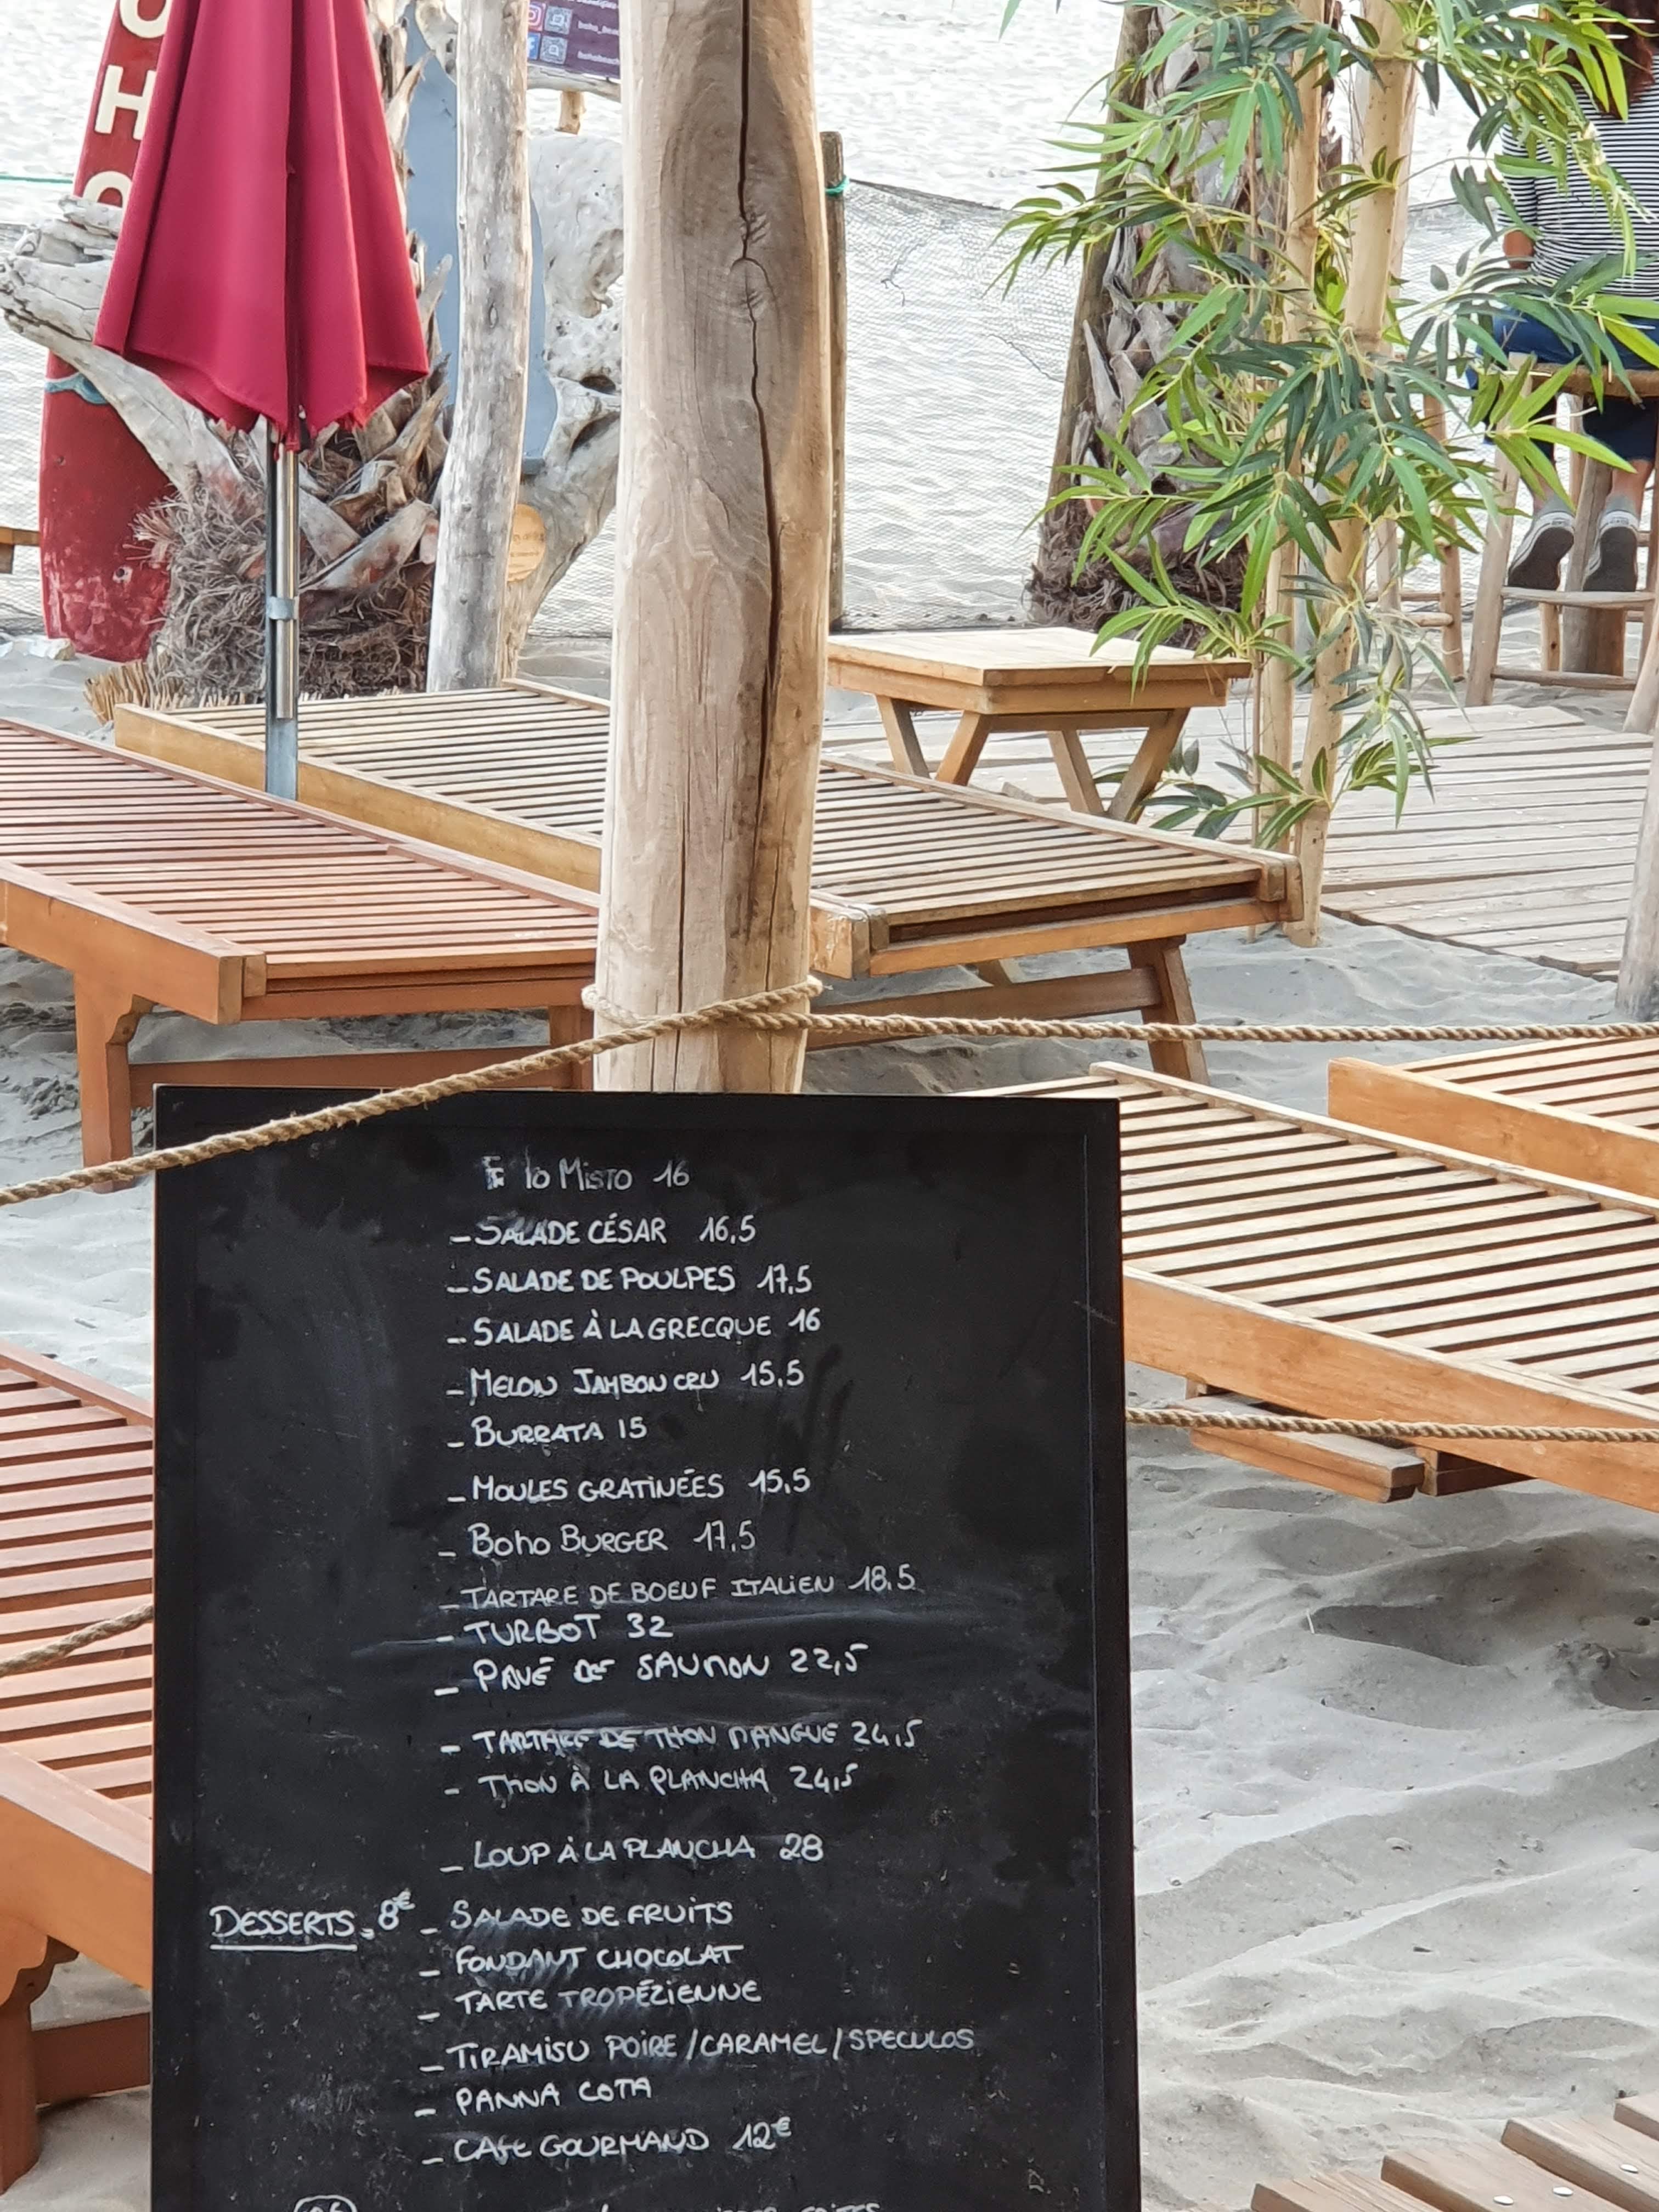 OHO
Misto 16
- SALADE CÉSAR 16,5
- SALADE DE POULPES 17,5
- SALADE À LA GRECQUE 16
- MELON JAMBON CRU 15,5
- BURRATA 15
- MOULES GRATINÉES 15,5
- Boho BURGER 17,5
- TARTARE DE BOEUF ITALIEN 18,5
- TURBOT 32
- PAVÉ DE SAUMON 22,5
- TARTARE DE THON MANGUE 24,5
- THON À LA PLANCHA 24,5
- LOUP À LA PLANCHA 28
DESSERTS - 8€ - SALADE DE FRUITS
- FONDANT CHOCOLAT
- TARTE TROPÉZIENNE
- TIRAMISU POIRE / CARAMEL / SPECULOS
- PANNA COTA
- CAFE GOURMAND 12€